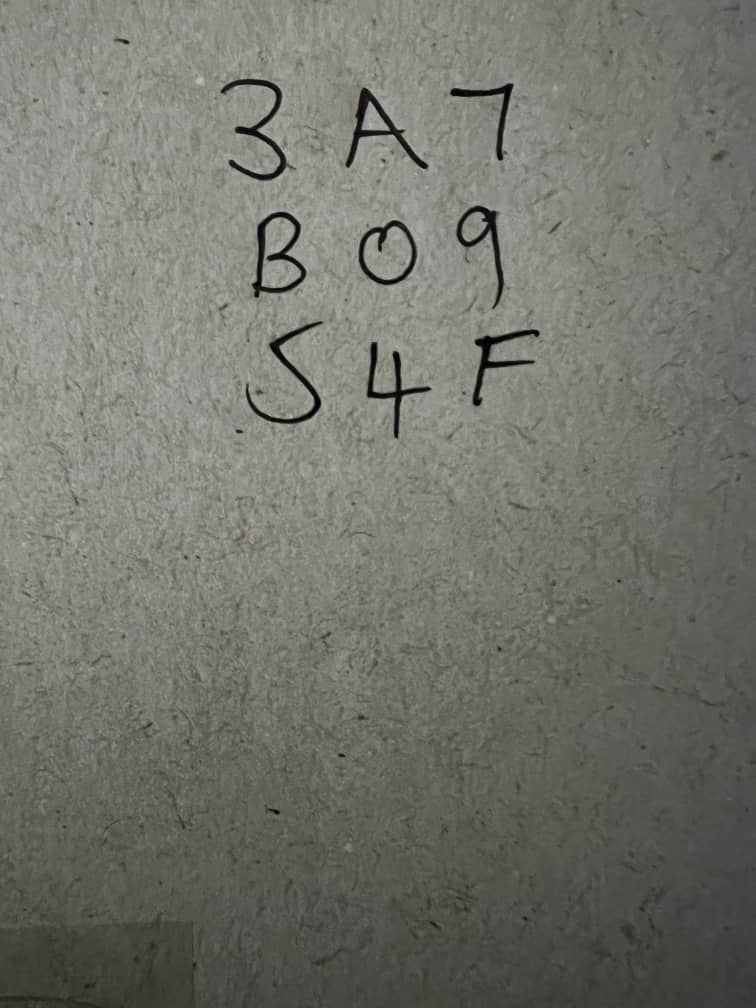 3 A 7
B 0 9
S 4 F